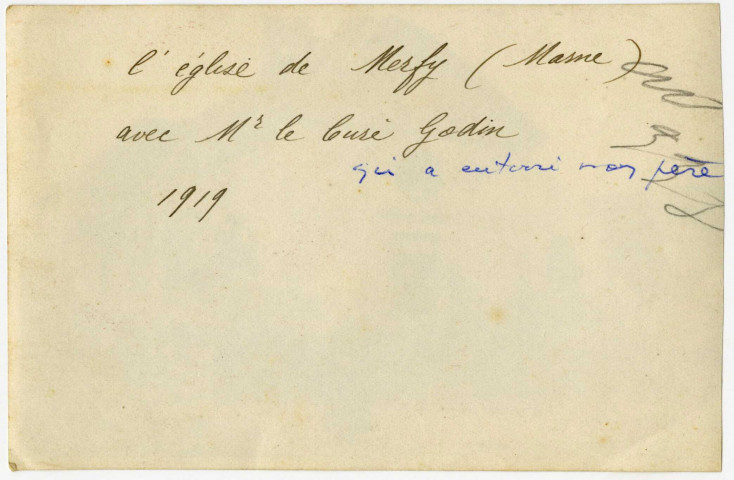 l'église de Merfy (Marne)
avec Mr le Curé Godin
qui a enterré mon père
1919